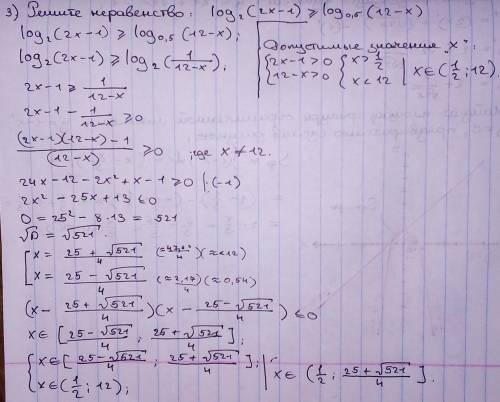 3) Решите неравенство: log₂(2x-1) ≥ log₀,₅(12-x)
log₂(2x-1) ≥ log₀,₅(12-x);
log₂(2x-1) ≥ log₂(1/(12-x));
Допустимые значение "x":
{2x-1>0 {x>1/2 | x∈(1/2;12)
{12-x>0 {x<12
2x-1 ≥ 1/(12-x)
2x-1 - 1/(12-x) ≥ 0
((2x-1)(12-x)-1)/(12-x) ≥ 0 ; где x≠12.
24x-12-2x²+x-1 ≥ 0 |·(-1)
2x²-25x+13 ≤ 0
D = 25²-8·13 = 521
√D = √521.
[x = (25+√521)/4 (≈<12)
[x = (25-√521)/4 (≈2,17/4)(≈0,54)
(x - (25+√521)/4)(x - (25-√521)/4) ≤ 0
x∈[(25-√521)/4 ; (25+√521)/4];
{x∈[(25-√521)/4 ; (25+√521)/4]; | x∈(1/2; (25+√521)/4].
{x∈(1/2;12);